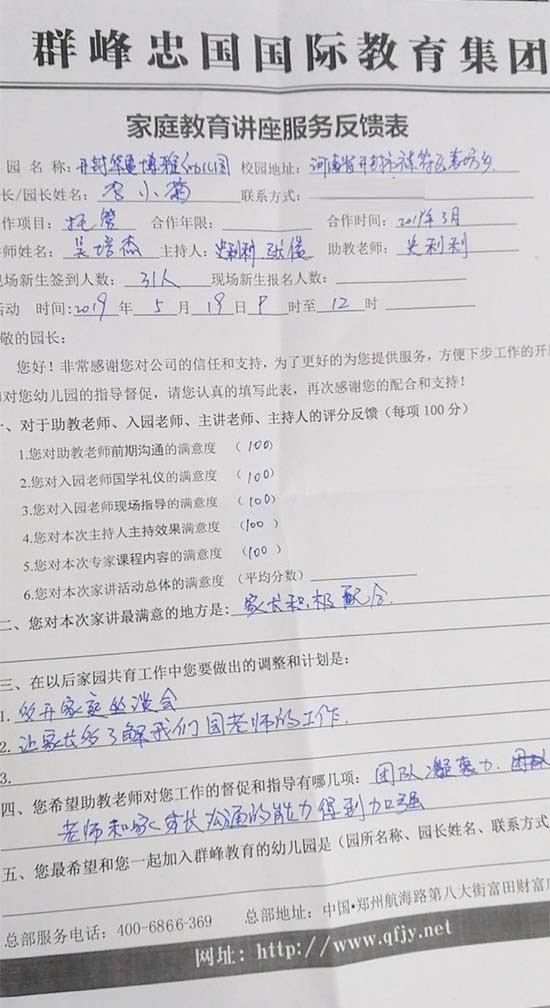 群峰忠国国际教育集团
家庭教育讲座服务反馈表
园名称:开封华夏博雅幼儿园 校园地址:河南省开封市祥符区袁坊乡
长/园长姓名:李小菊 联系方式:
作项目:托管 合作年限: 合作时间:2019年3月
师姓名:吴增杰 主持人:史利利 张俊 助教老师:史利利
现场新生签到人数:31人 现场新生报名人数:
活动 时间:2019年5月19日8时至12时
敬的园长:
您好!非常感谢您对公司的信任和支持,为了更好的为您提供服务,方便下步工作的开展
和对您幼儿园的指导督促,请您认真的填写此表,再次感谢您的配合和支持!
一、对于助教老师、入园老师、主讲老师、主持人的评分反馈(每项100分)
1.您对助教老师前期沟通的满意度 (100)
2.您对入园老师国学礼仪的满意度 (100)
3.您对入园老师现场指导的满意度 (100)
4.您对本次主持人主持效果满意度 (100)
5.您对本次专家课程内容的满意度 (100)
6.您对本次家讲活动总体的满意度 (平均分数)
二、您对本次家讲最满意的地方是:家长积极配合.
三、在以后家园共育工作中您要做出的调整和计划是:
1.多开家庭座谈会
2.让家长多了解我们园老师的工作.
3.
四、您希望助教老师对您工作的督促和指导有哪几项:团队凝聚力.
老师和家长沟通的能力得到加强
五、您最希望和您一起加入群峰教育的幼儿园是(园所名称、园长姓名、联系方式
总部服务电话:400-6866-369 总部地址:中国•郑州航海路第八大街富田财富广
网址:http://www.qfjy.net